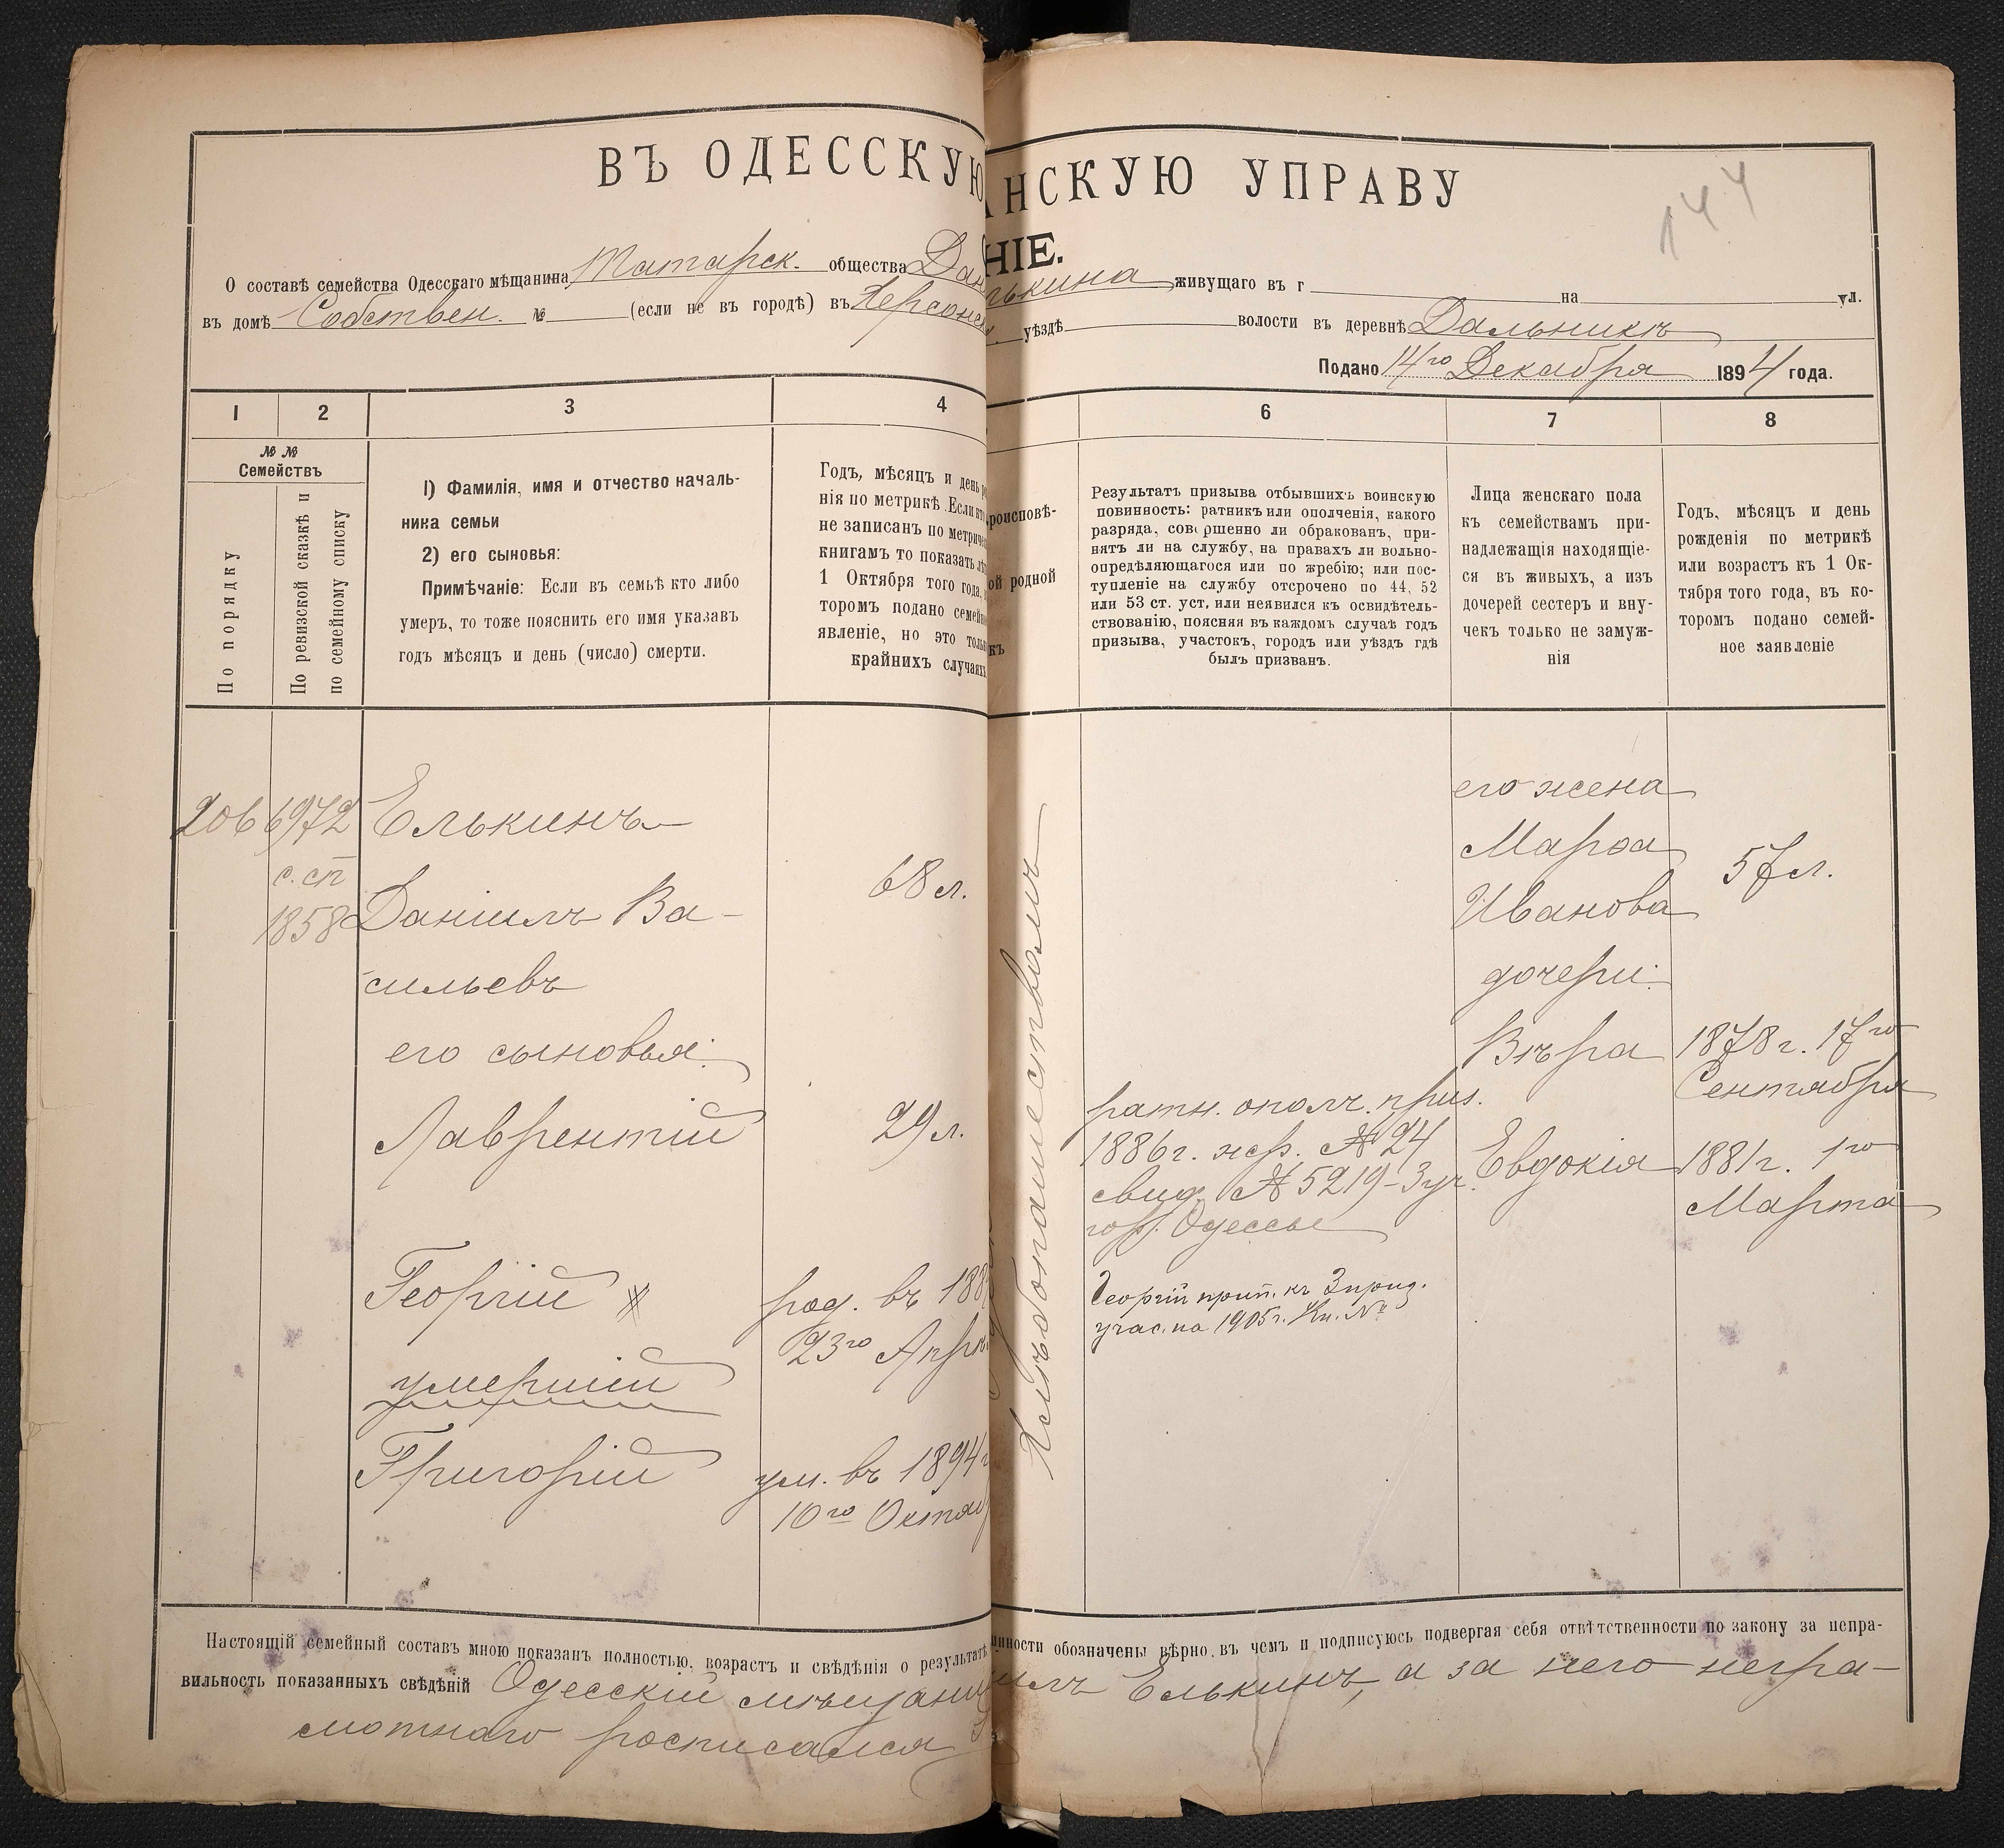 ВЪ ОДЕССКУЮ
АНСКУЮ УПРАВУ
144
НІЕ.
О составѣ семейства Одесскаго мѣщанина Татарск. общества Дан
лькина живущаго въ г на ул.
въ домѣ Собствен. № (если не въ городѣ) въ Херсонск. уѣздѣ волости въ деревнѣ Дальникъ
Подано 14го Декабря 1894 года.
1 2 3 4 6 7 8
№ №
Семействъ
По порядку
По ревизской сказкѣ и
по семейному списку
1) Фамилія, имя и отчество началь-
ника семьи
2) его сыновья:
Примѣчаніе: Если въ семьѣ кто либо
умеръ, то тоже пояснить его имя указавъ
годъ мѣсяцъ и день (число) смерти.
Годъ, мѣсяцъ и день ро
нія по метрикѣ. Если кто
не записанъ по метриче
книгамъ то показать лѣт
1 Октября того года, в
торомъ подано семейн
явленіе, но это тольк
крайнихъ случаяхъ
роисповѣ-
ой родной
къ
Результатъ призыва отбывшихъ воинскую
повинность: ратникъ или ополченія, какого
разряда, совершенно ли обракованъ, при-
нятъ ли на службу, на правахъ ли вольно-
опредѣляющагося или по жребію; или пос-
тупленіе на службу отсрочено по 44, 52
или 53 ст. уст, или неявился къ освидѣтель-
ствованію, поясняя въ каждомъ случаѣ годъ
призыва, участокъ, городъ или уѣздъ гдѣ
былъ призванъ.
Лица женскаго пола
къ семействамъ при-
надлежащія находящіе-
ся въ живыхъ, а изъ
дочерей сестеръ и вну-
чекъ только не замуж-
нія
Годъ, мѣсяцъ и день
рожденія по метрикѣ
или возрастъ къ 1 Ок-
тября того года, въ ко-
торомъ подано семей-
ное заявленіе
206 6972
с. сп
1858
Елькинъ
Даніилъ Ва-
сильевъ
68 л.
его сыновья:
Лаврентій
29 л.
Георгій
род. въ 188
23го Апрѣ
умершій
Григорій
ум. въ 1894 г
10го Октяб
Хлѣбопашествомъ
ратн. ополч. приз.
1886 г. жер. № 24
свид. № 5219 – 3 уч.
гор. Одессы
Георгій прип. къ 3 приз.
учас. на 1905 г. Кн. №
его жена
Марѳа
Иванова
57 л.
дочери:
Вѣра
1878 г. 17го
Сентября
Евдокія
1881 г. 1го
Марта
Настоящій семейный составъ мною показанъ полностью, возрастъ и свѣдѣнія о результатѣ
инности обозначены вѣрно, въ чемъ и подписуюсь подвергая себя отвѣтственности по закону за непра-
вильность показанныхъ свѣдѣній Одесскій мѣщани
илъ Елькинъ, а за него негра-
мотнаго росписался